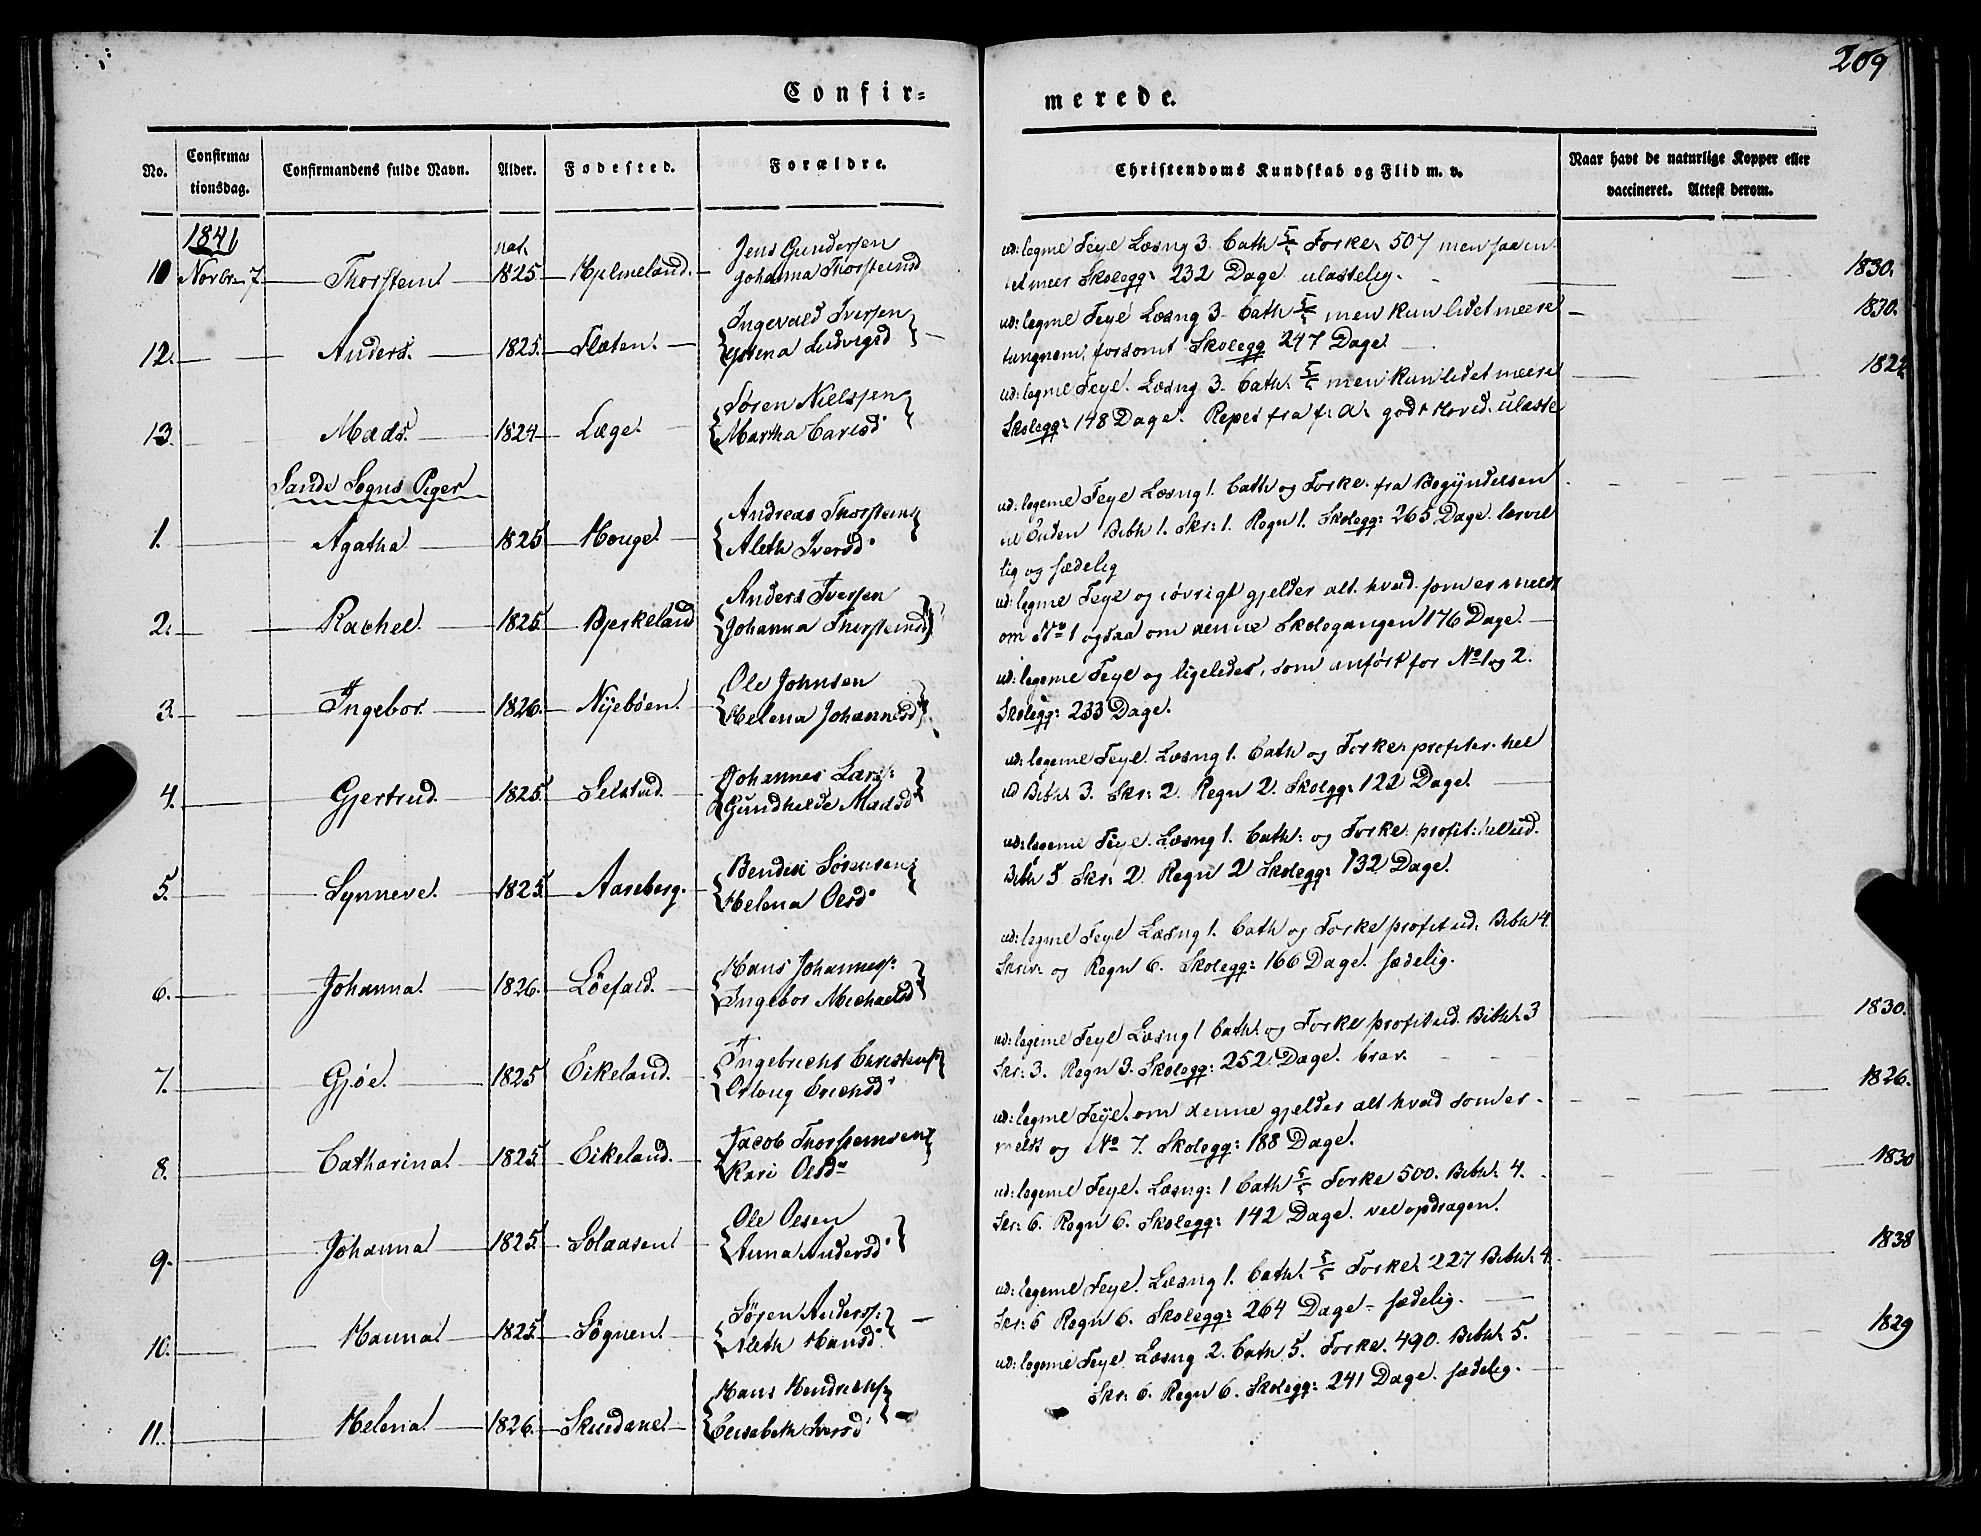 209
Confir=
merede.
No.
Confirma:
tionsdag.
Confirmandens fulde Navn.
Alder.
Fødested.
Forældre.
Christendoms Kundskab og Flid m. v.
Naar havt de naturlige Kopper eller
vaccineret. Attest derom.
1841
nat.
Jens Gundersen
ud: legme Feyl Læsng 3. Cath 5/5 Forke. 507 men saa en
10 Novbr 7. Thorstein 1825 Hjelmeland. Johanna Thorsteinsd
meer Skolegg: 232 Dage ulastelig. 1830.
Ingevald Iversen
ud: legme Feyl Læsng 3. Cath 5/5 men kun lidet meere 1830.
12. Anders. 1825. Flaten. Ludvigsd
tungnem, forsømt Skolegg 247 Dage
Søren Nielssen
ud: legme Feyl. Læsng 3. Cath. 5/5 men kun lidet meere
13. Mads. 1824 Læge. Martha Carlsd
Skolegg: 148 Dage. fra godt Hoved.
Sande Sogns Piger
Andreas Thorsteins
ud: legeme Feyl Læsng 1. Cath og Forke. fra Begyndelsen
1. Agatha 1825 Houge. Aleth Iversd
til Enden Bibh 1. Skr: 1. Regn 1. Skolegg: 265 Dage. lærvil
lig og sædelig
Anders Iversen
ud: legme Feyl og iøvrigt gjelder alt hvad som er meldt
2. Rachel. 1825 Bjerkeland Johanna Thorsteinsd
om No 1 ogsaa om denne Skolegangen 176 Dage.
Ole Johnsen
ud: legeme Feyl og ligeledes, som anført for No 1 og 2.
3. Ingebor. 1826. Nybøen. Helena Johannesd
Skolegg: 233 Dage.
Johannes Lars:
ud: legeme Feyl. Læsng 1. Cath og Forke. profiter. hel
4. Gjertrud. 1825 Selstad. Gundhilde Madsd
ud Bibh. 3. Skr: 2 Regn 2. Skolegg: 122 Dage.
Bendix Sørensen
ud: legeme Feyl. Læsng 1. Cath: og Forke. profit: hel ud.
5. Synneve. 1825 Aareberg. Helena Olsd
Bibh 5 Skr: 2. Regn 2 Skolegg: 132 Dage.
Hans Johanness:
ud: legme Feyl Læsng 1. Cath og Forke profit ud. Bibh 4.
6. Johanna. 1826. Løefald. Ingebor Michaelsd
Skriv: og Regn 6. Skolegg: 166 Dage. sædelig.
Ingebricht Christens:
ud: legeme Feyl Læsng 1 Cath. og Forke profit ud. Bibh. 3 1830.
7. Gjøe. 1825 Eikeland. Erichsd
Skr: 3. Regn 3. Skolegg: 252 Dage. brav.
Jacob Thorsteinsen
ud: legme Feyl. om denne gjelder alt hvad som er 1826.
8. Catharina. 1825. Eikeland. Kari Olsd
meldt og No 7. Skolegg: 188 Dage.
Ole Olsen
ud: legeme Feyl. Læsng: 1 Cath 5/5 Forke 500. Bibh. 4. 1830
9. Johanna 1825. Solaasen Anna Andersd
Skr: 6. Regn 6. Skolegg: 142 Dage. vel opdragen.
Søren Anderss:
ud: legeme Feyl. Læsng 1. Cath. 5/5 Forke. 227 Bibh. 4. 1838
10. Hanna. 1825. Søgnen. Aleth Hansd
Skr: 6 Regn 6. Skolegg: 264 Dage - sædelig.
Hans Hendrichs:
ud: legeme Feyl. Læsng 2. Cath. 5. Forke. 490. Bibh. 5. 1829
11. Helena. 1826. Elisabeth Iversd
Skr: 6. Regn 6. Skolegg: 241 Dage. sædelig.